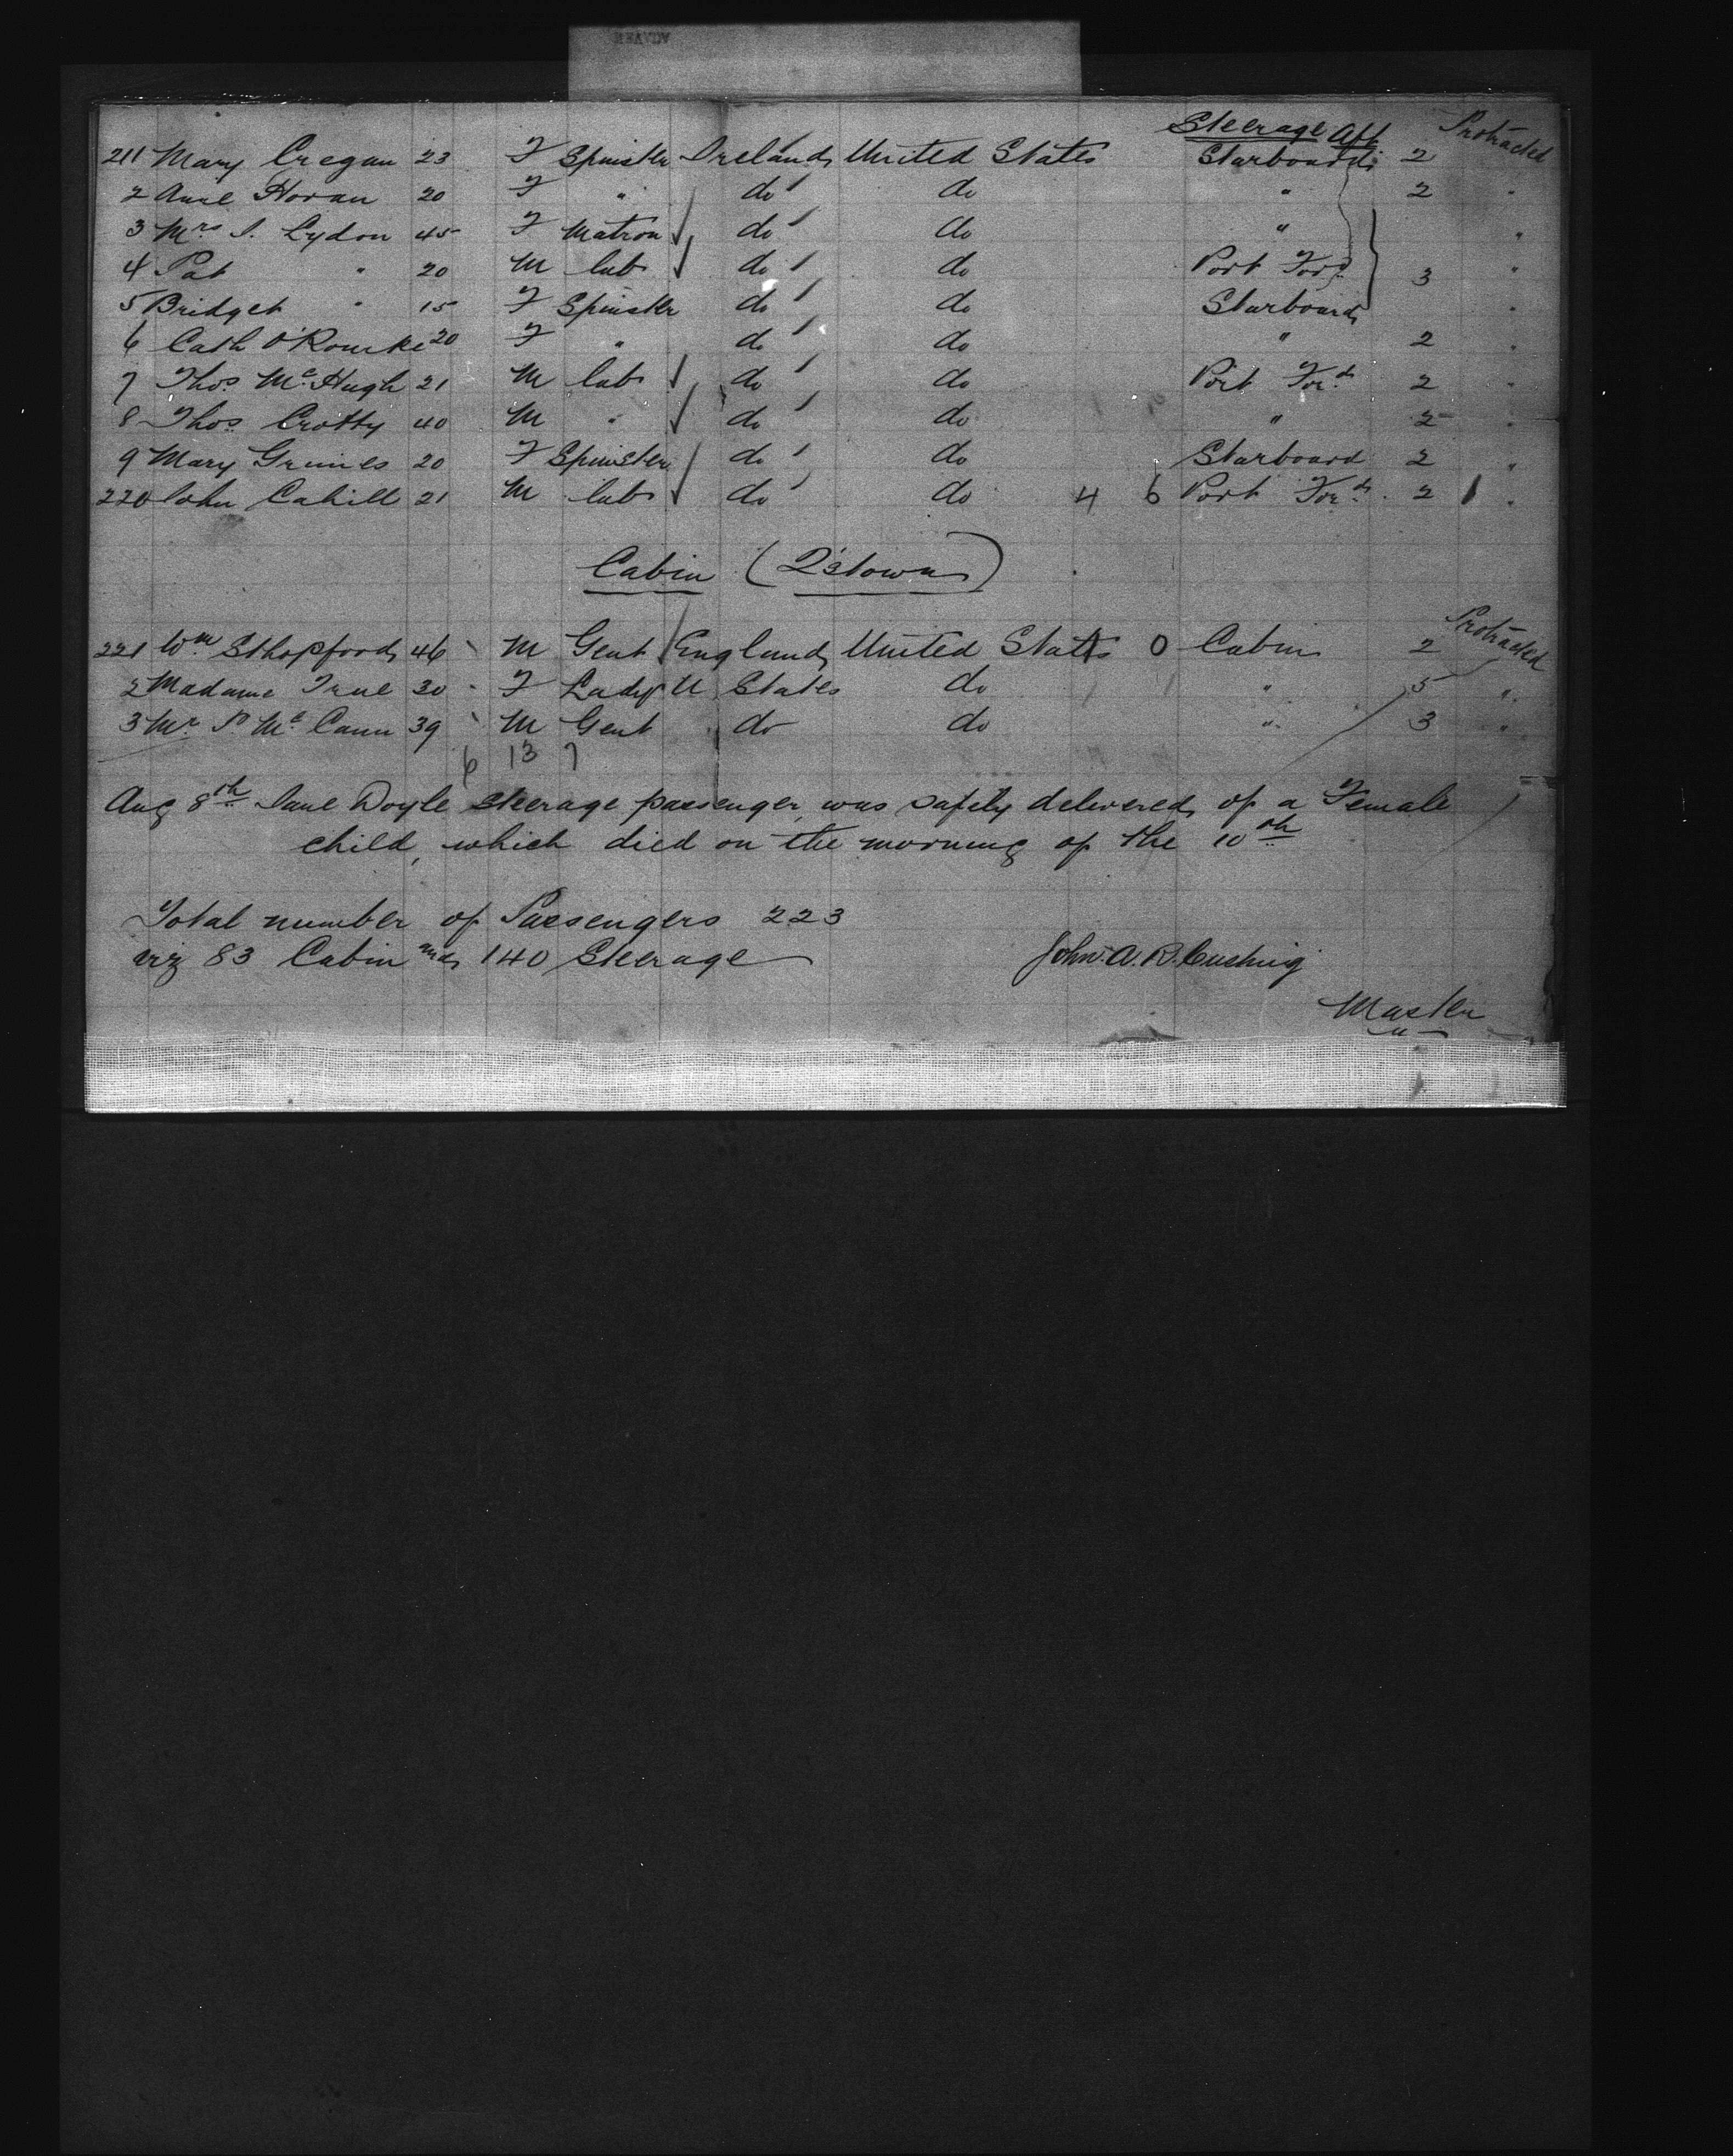 Steerage Aft Protracted
211 Mary Cregan 23 F Spinster Ireland United States Starboard 2
2 Anne Horan 20 F " do do " 2 "
3 Mrs S. Lydon 45 F Matron do do " "
4 Pat " 20 M lab do do Port Ford 3 "
5 Bridget " 15 F Spinster do do Starboard "
6 Cath O'Rourke 20 F " do do " 2 "
7 Thos McHugh 21 M lab do do Port Ford 2 "
8 Thos Crotty 40 M " do do " 2 "
9 Mary Grimes 20 F Spinster do do Starboard 2 "
220 John Cahill 21 M lab do do 4 6 Port Ford 2 1 "
Cabin (Q'stown)
221 Wm Sthopford 46 M Gent England United States 0 Cabin 2 Protracted
2 Madame True 30 F Lady U States do " 5 "
3 Mr P McCann 39 M Gent do do " 3 "
6 13 7
Aug 8th Jane Doyle steerage passenger, was safely delivered of a Female
child, which died on the morning of the 10th
Total number of Passengers 223
viz 83 Cabin and 140 Steerage John. A. R. Cushing
Master